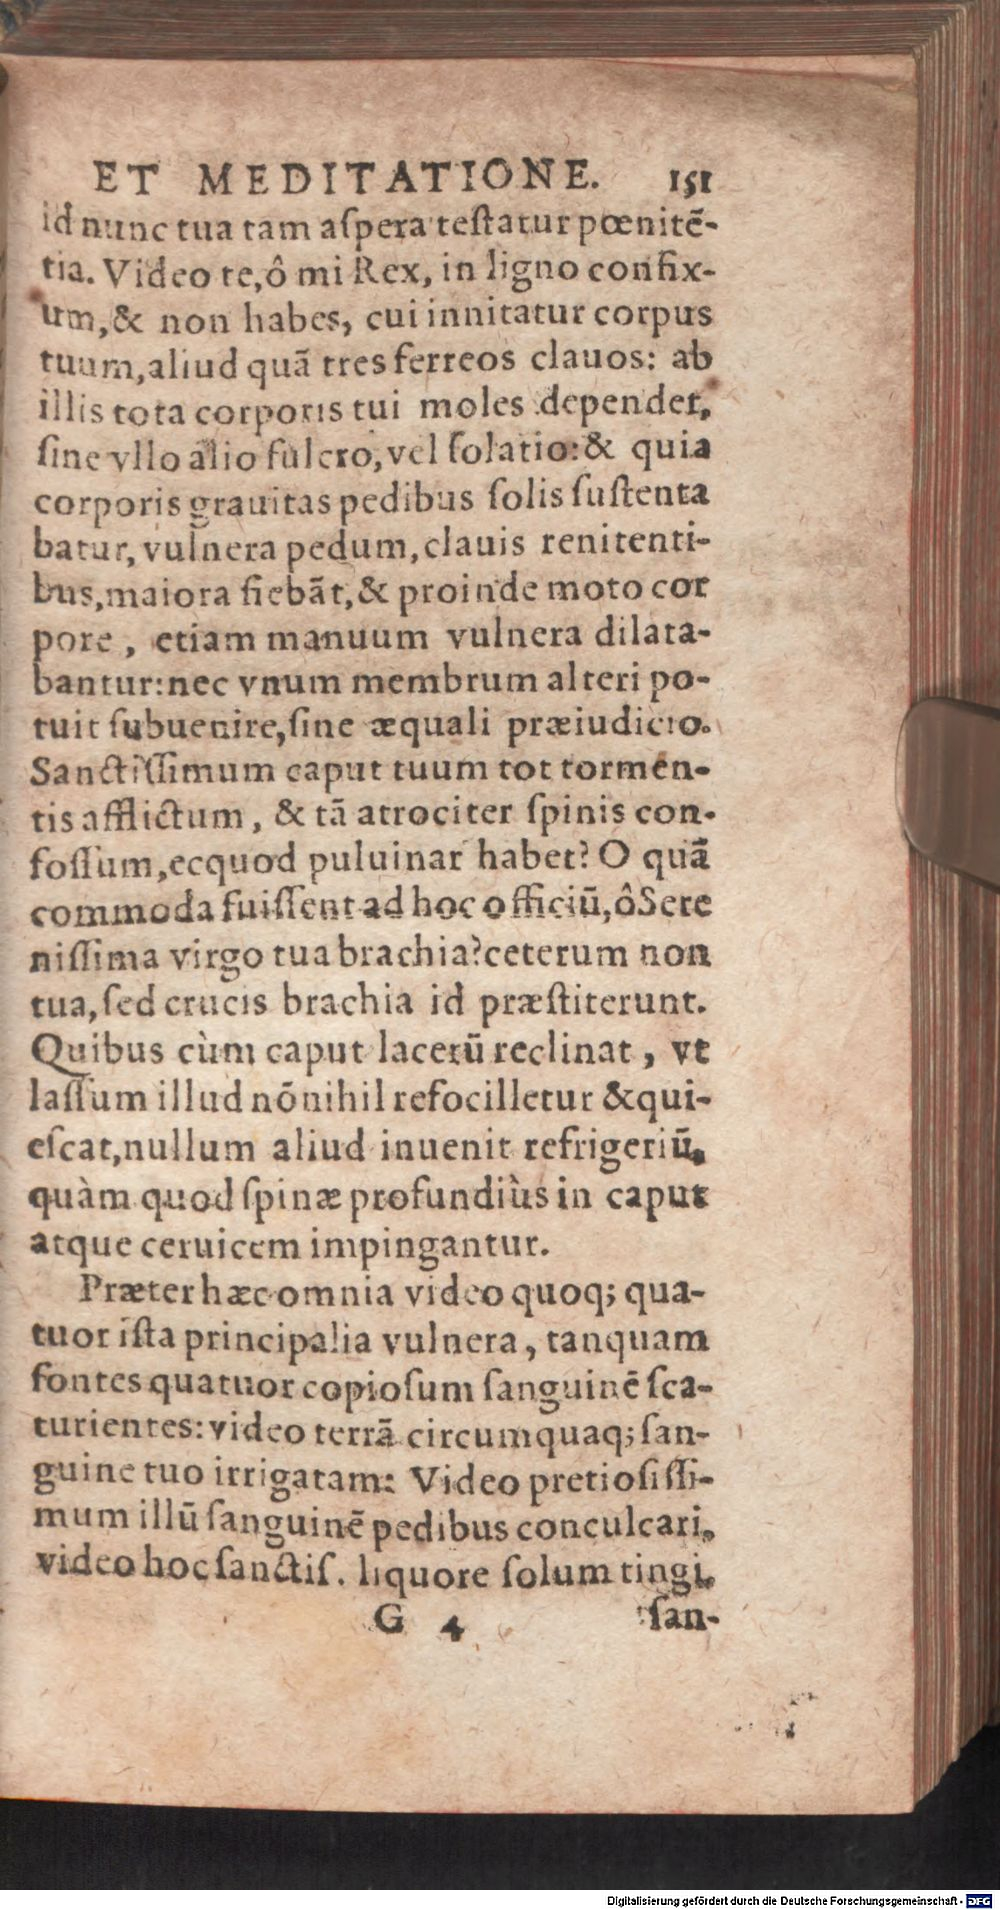 ET MEDITATIONE. 151
id nunc tua tam aſpera teſtatur pœnitẽ-
tia. Video te, ô mi Rex, in ligno confix-
um, & non habes, cui innitatur corpus
tuum, aliud quã tres ferreos clauos: ab
illis tota corporis tui moles dependet,
ſine vllo alio fulcro, vel ſolatio: & quia
corporis grauitas pedibus ſolis ſuſtenta
batur, vulnera pedum, clauis renitenti-
bus, maiora fiebãt, & proinde moto cor
pore, etiam manuum vulnera dilata-
bantur: nec vnum membrum alteri po-
tuit ſubuenire, ſine æquali præiudicio.
Sanctiſſimum caput tuum tot tormen-
tis afflictum, & tã atrociter ſpinis con-
foſſum, ecquod puluinar habet? O quã
commoda fuiſſent ad hoc officiũ, ô Sere
niſſima virgo tua brachia? ceterum non
tua, ſed crucis brachia id præſtiterunt.
Quibus cùm caput lacerũ reclinat, vt
laſſum illud nõnihil refocilletur & qui-
eſcat, nullum aliud inuenit refrigeriũ,
quàm quod ſpinæ profundiùs in caput
atque ceruicem impingantur.
Præter hæc omnia video quoq; qua-
tuor iſta principalia vulnera, tanquam
fontes quatuor copioſum ſanguinẽ ſca-
turientes: video terrã circumquaq; ſan-
guine tuo irrigatam: Video pretioſiſſi-
mum illũ ſanguinẽ pedibus conculcari,
video hoc ſanctiſ. liquore ſolum tingi,
G 4 ſan-
Digitalisierung gefördert durch die Deutsche Forschungsgemeinschaft - DFG